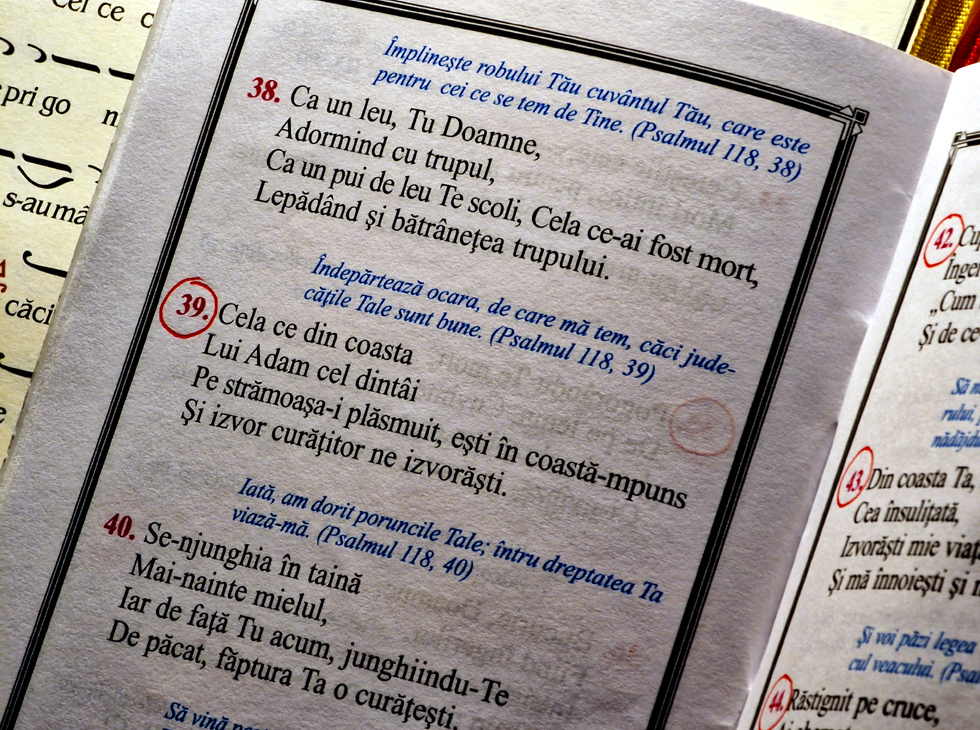 Cel ce c
pri go
s-au mâ
căci
Împlineşte robului Tău cuvântul Tău, care este
pentru cei ce se tem de Tine. (Psalmul 118, 38)
38. Ca un leu, Tu Doamne,
Adormind cu trupul,
Ca un pui de leu Te scoli, Cela ce-ai fost mort,
Lepădând şi bătrâneţea trupului.
Îndepărtează ocara, de care mă tem, căci jude-
căţile Tale sunt bune. (Psalmul 118, 39)
39. Cela ce din coasta
Lui Adam cel dintâi
Pe strămoaşa-i plăsmuit, eşti în coastă-mpuns
Şi izvor curăţitor ne izvorăşti.
Iată, am dorit poruncile Tale; întru dreptatea Ta
viază-mă. (Psalmul 118, 40)
40. Se-njunghia în taină
Mai-nainte mielul,
Iar de faţă Tu acum, junghiindu-Te
De păcat, făptura Ta o curăţeşti.
Să vină
42. Cu
Înger
„Cum
Şi de ce
Să n
rului,
nădăjdu
43. Din coasta Ta,
Cea însuliţată,
Izvorăşti mie viaţ
Şi mă înnoieşti şi
Şi voi păzi legea
cul veacului. (Psa
44. Răstignit pe cruce,